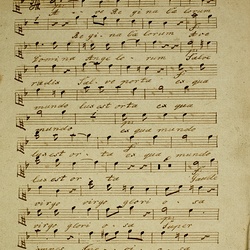 Ave Regina Cælorum
Regina Cælorum Ave
Domina Angelorum Salve
radix Salve porta ex qua
mundo lux est orta ex qua
mundo ex qua mundo
lux est orta ex qua mundo
lux est orta Gaude
virgo virgo glorio sa
virgo gloriosa Super
omnes